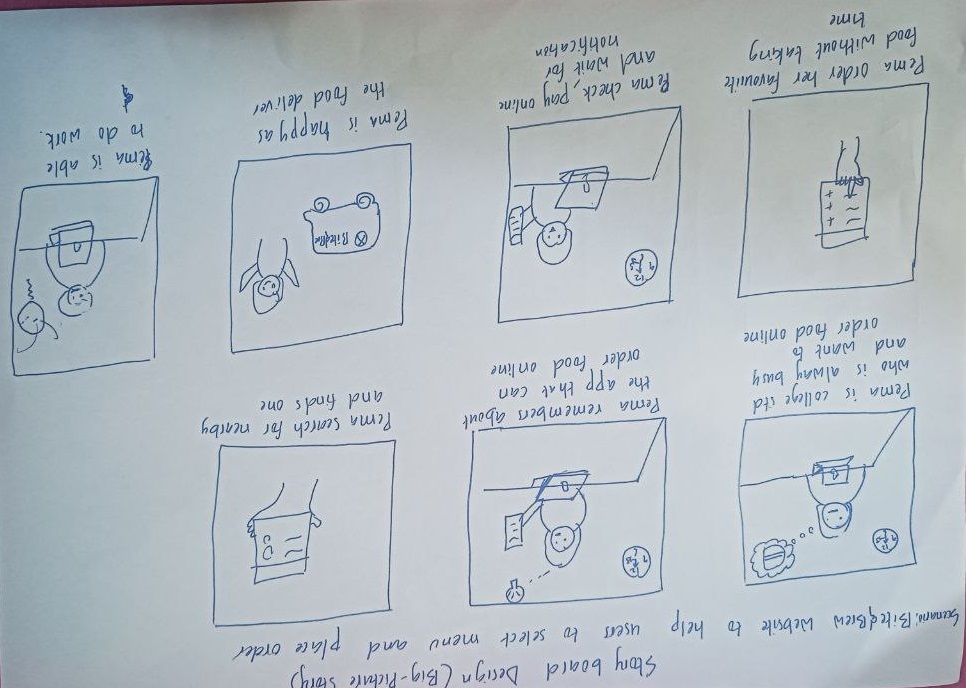 Story board Design (Big-Picture Story)
Scenario: Bite&Brew Website to help users to select menu and place order
Pema is college std
who is alway busy
and want to
order food online
Pema remembers about
the app that can
order food online
Pema search for nearby
and finds one
Pema order her favourite
food without taking
time
Pema check, pay online
and wait for
notification
Bite&Bre
Pema is happy as
the food deliver
Pema is able
to do work.